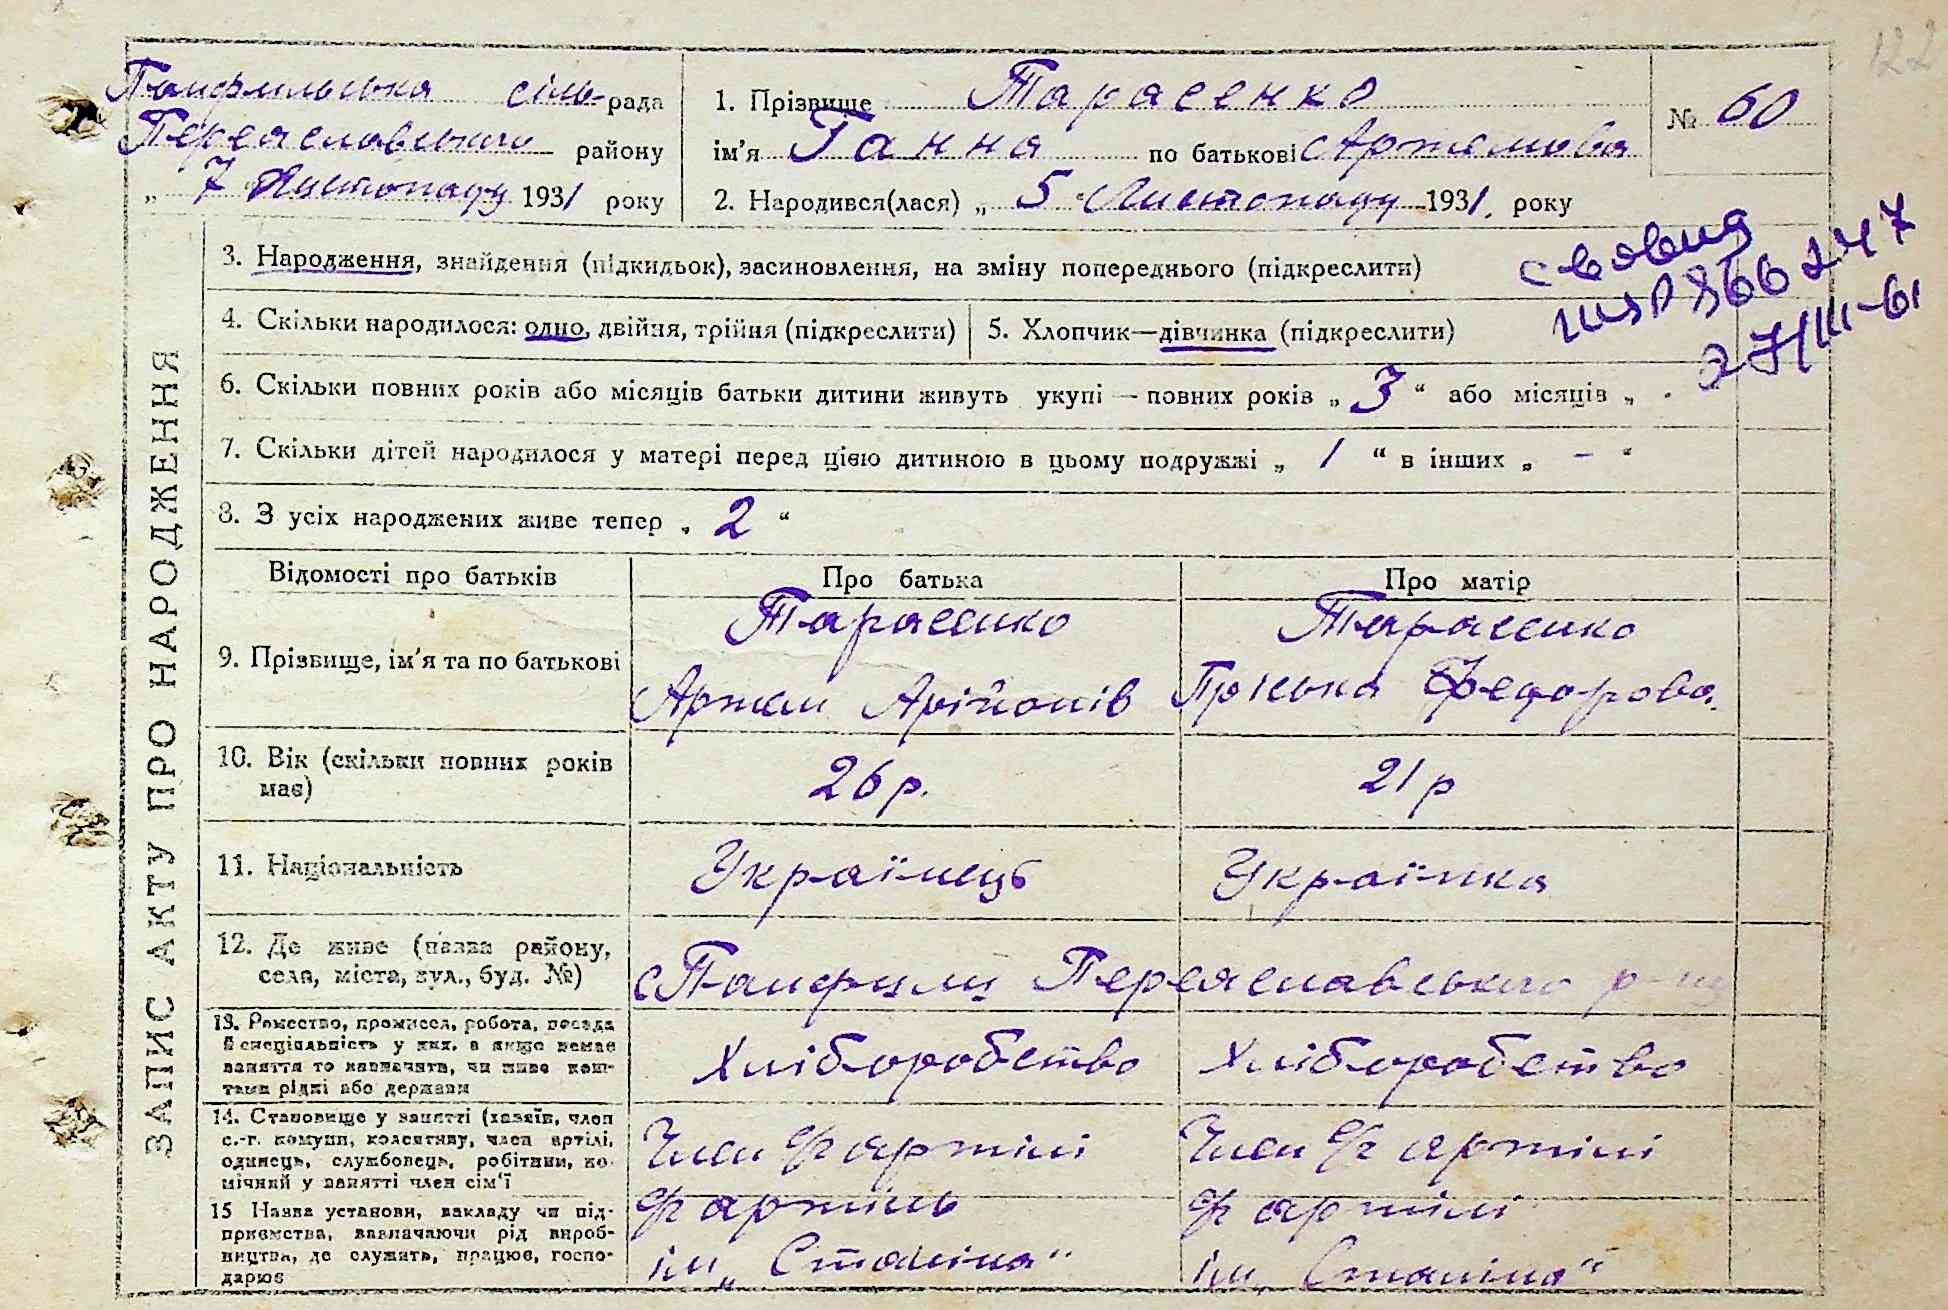 122
Панфильська сіль-рада
Переяславського району
„ 7 Листопаду 1931 року
1. Прізвище Тарасенко
ім'я Ганна по батькові Артемова
2. Народився(лася) „ 5 " Листопаду 1931, року
№ 60
ЗАПИС АКТУ ПРО НАРОДЖЕННЯ
3. Народження, знайдення (підкидьок), засиновлення, на зміну попереднього (підкреслити)
4. Скільки народилося: одно, двійня, трійня (підкреслити)
5. Хлопчик—дівчинка (підкреслити)
866247
27/III-61
6. Скільки повних років або місяців батьки дитини живуть укупі — повних років „ 3 “ або місяців „
7. Скільки дітей народилося у матері перед цією дитиною в цьому подружжі „ 1 “ в інших „ – “
8. З усіх народжених живе тепер „ 2 “
Відомості про батьків Про батька Про матір
9. Прізвище, ім'я та по батькові
Тарасенко Тарасенко
Артем Прiська Федорова.
10. Вік (скільки повних років має) 26 р. 21 р
11. Національність Українець Українка
12. Де живе (назва району, села, міста, вул., буд. №)
с Панфили Переяславського р-ну
13. Ремество, промисел, робота, посада й спеціяльність у них, а якщо немає заняття то зазначити, чи живе коштами рідні або держави
Хліборобство Хліборобство
14. Становище у занятті (хазяїн, член с.-г. комуни, колективу, член артілі, одинець, службовець, робітник, помічний у занятті член сім'ї
Член с/г артілі Член с/г артілі
15 Назва установи, закладу чи підприємства, зазначаючи рід виробництва, де служить, працює, господарює
с/г артіль с/г артілі
ім „Сталіна" ім „Сталіна"